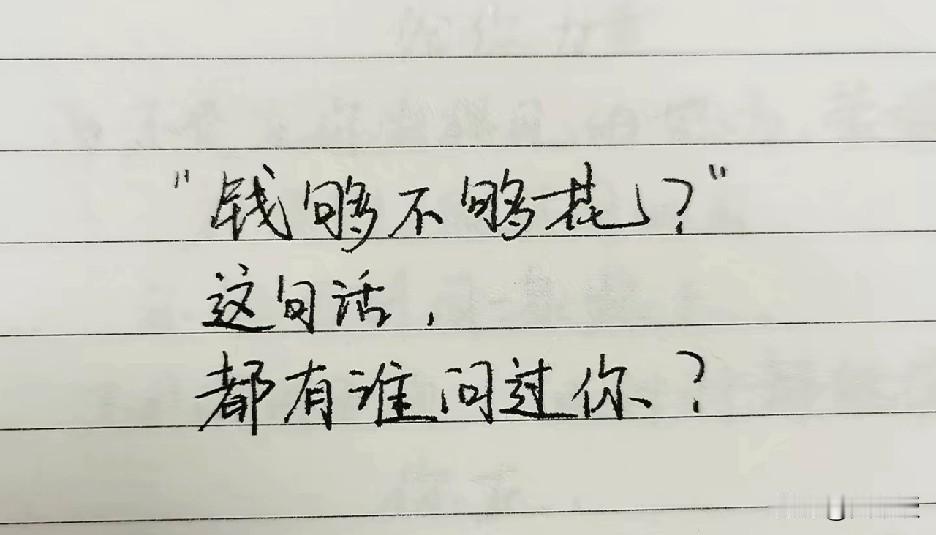 "钱够不够花？"
这句话，
都有谁问过你？